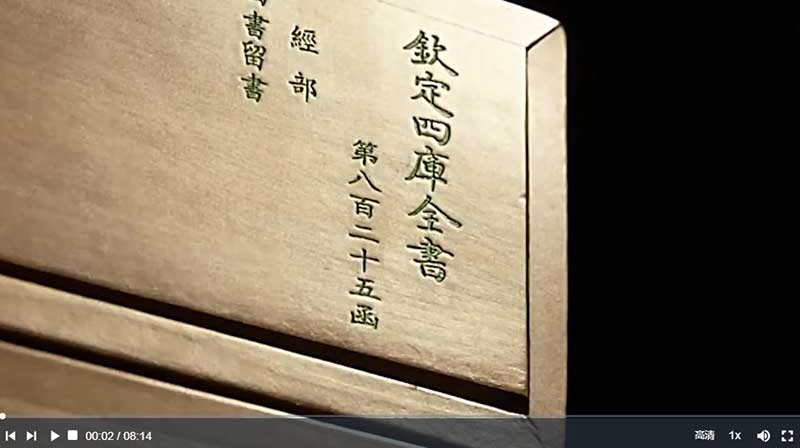 欽定四庫全書
第八百二十五函
經部
書留書
00:02 / 08:14
高清
1x